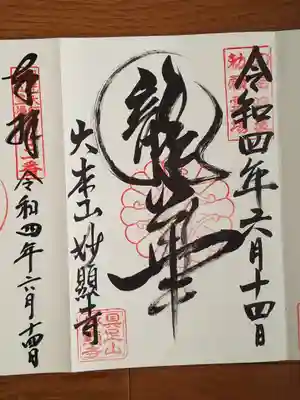 令和四年六月十四日
龍華
大本山妙顯寺
奉拝
令和四年六月十四日